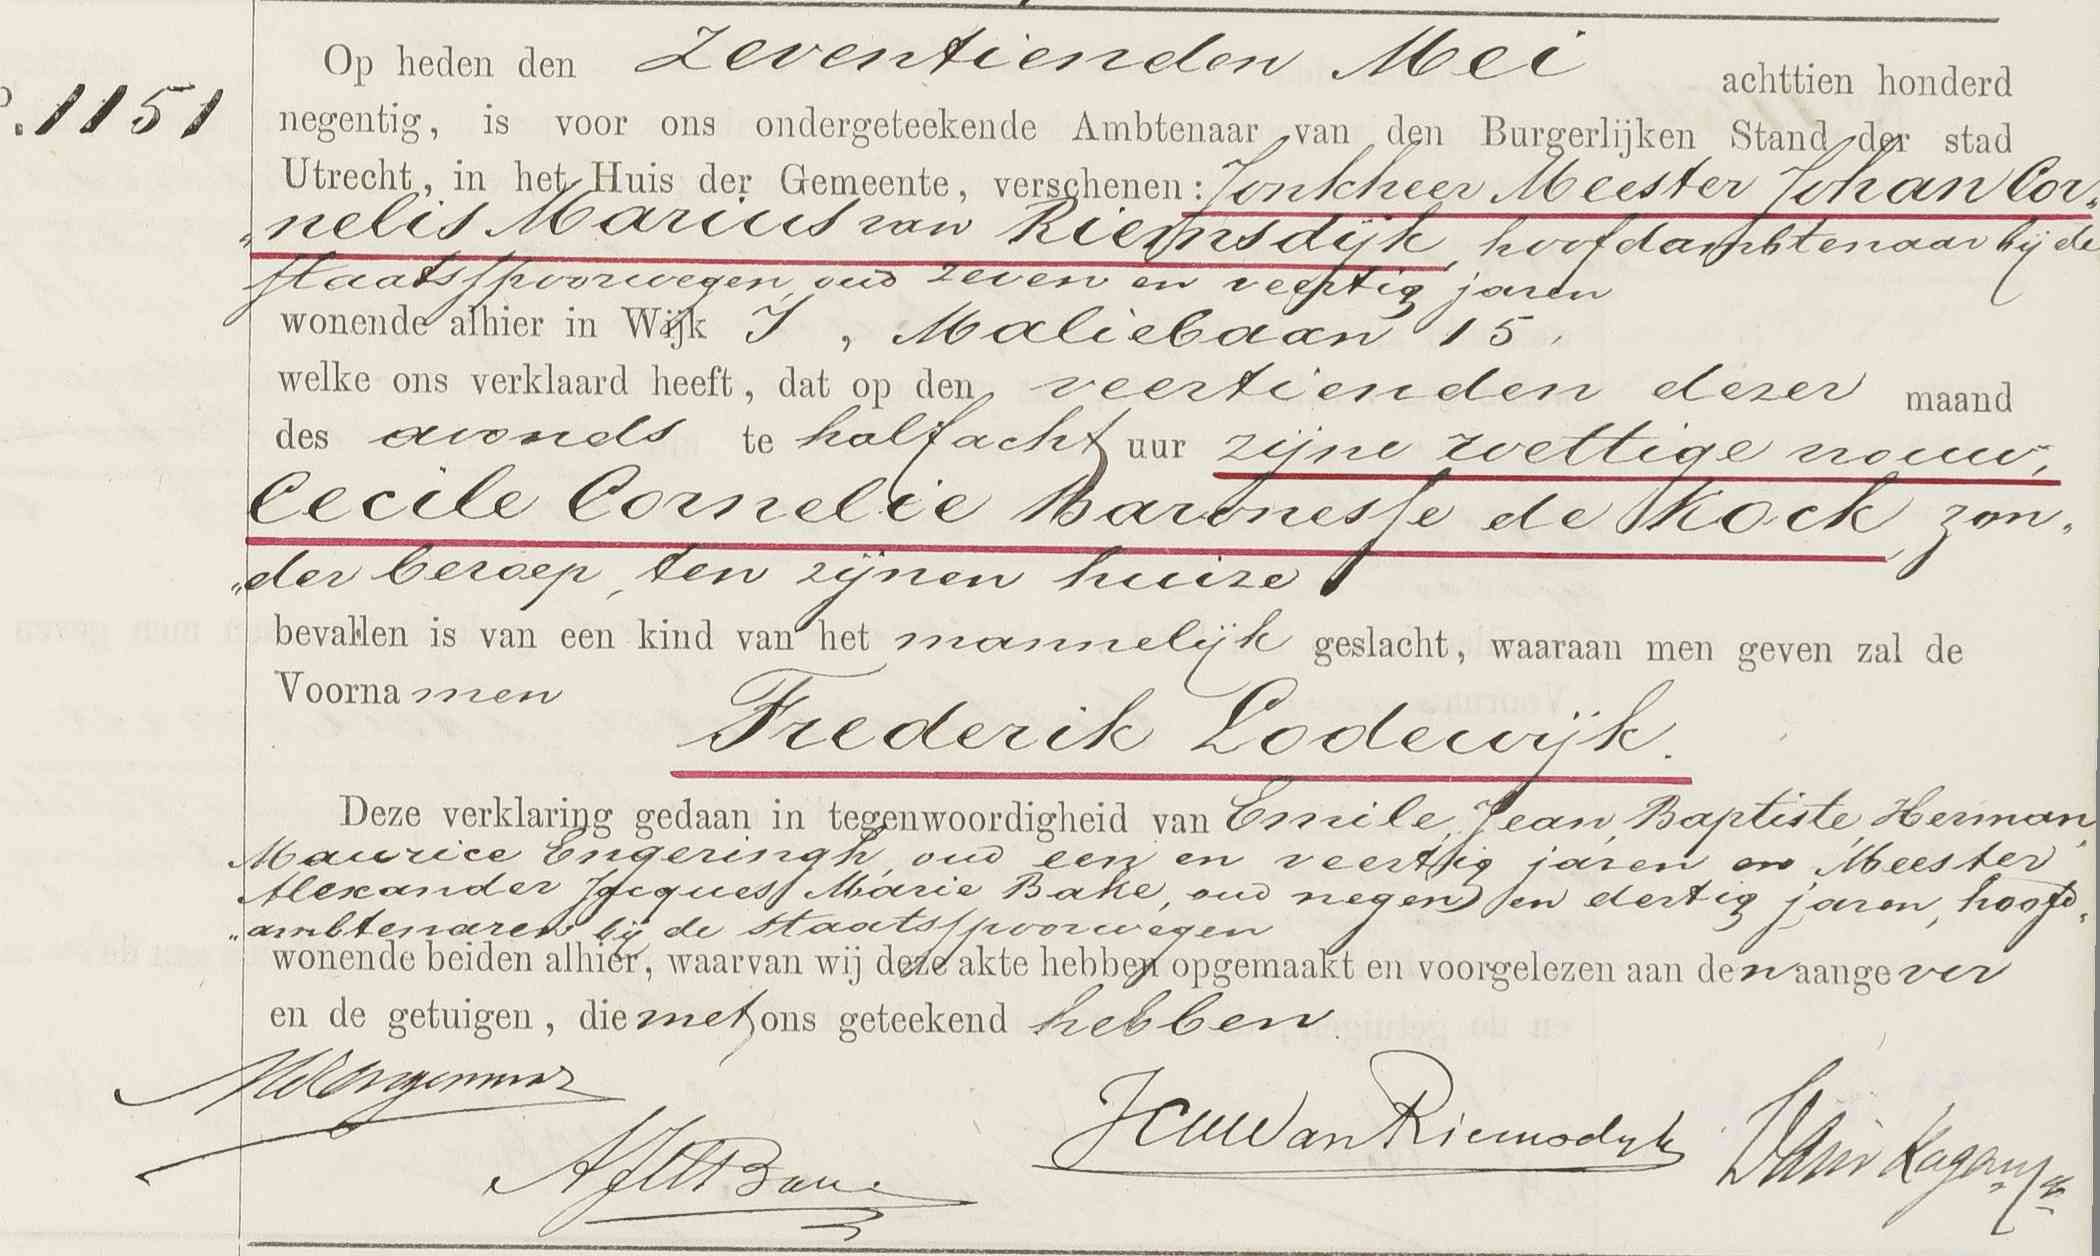 Op heden den Zeventienden Mei achttien honderd
.1151
negentig, is voor ons ondergeteekende Ambtenaar van den Burgerlijken Stand der stad
Utrecht, in het Huis der Gemeente, verschenen: Jonkheer Meester Johan Cor„
„nelis Marius van Riemsdijk, hoofdambtenaar bij de
staatsspoorwegen, oud zeven en veertig jaren
wonende alhier in Wijk I, Maliebaan 15.
welke ons verklaard heeft, dat op den veertienden dezer maand
des avonds te half acht uur zijne wettige vrouw,
Cecile Cornelie Baronesse de Kock, zon„
„der beroep, ten zijnen huize
bevallen is van een kind van het mannelijk geslacht, waaraan men geven zal de
Voornamen
Frederik Lodewijk.
Deze verklaring gedaan in tegenwoordigheid van Emile, Jean, Baptiste, Herman,
Maurice Engeringh, oud een en veertig jaren en Meester
Alexander Jacques Marie Bake, oud negen en dertig jaren, hoofd„
„ambtenaren bij de staatsspoorwegen
wonende beiden alhier, waarvan wij deze akte hebben opgemaakt en voorgelezen aan den aangever
en de getuigen, die met ons geteekend hebben.
JCM van Riemsdijk
AJM Bake